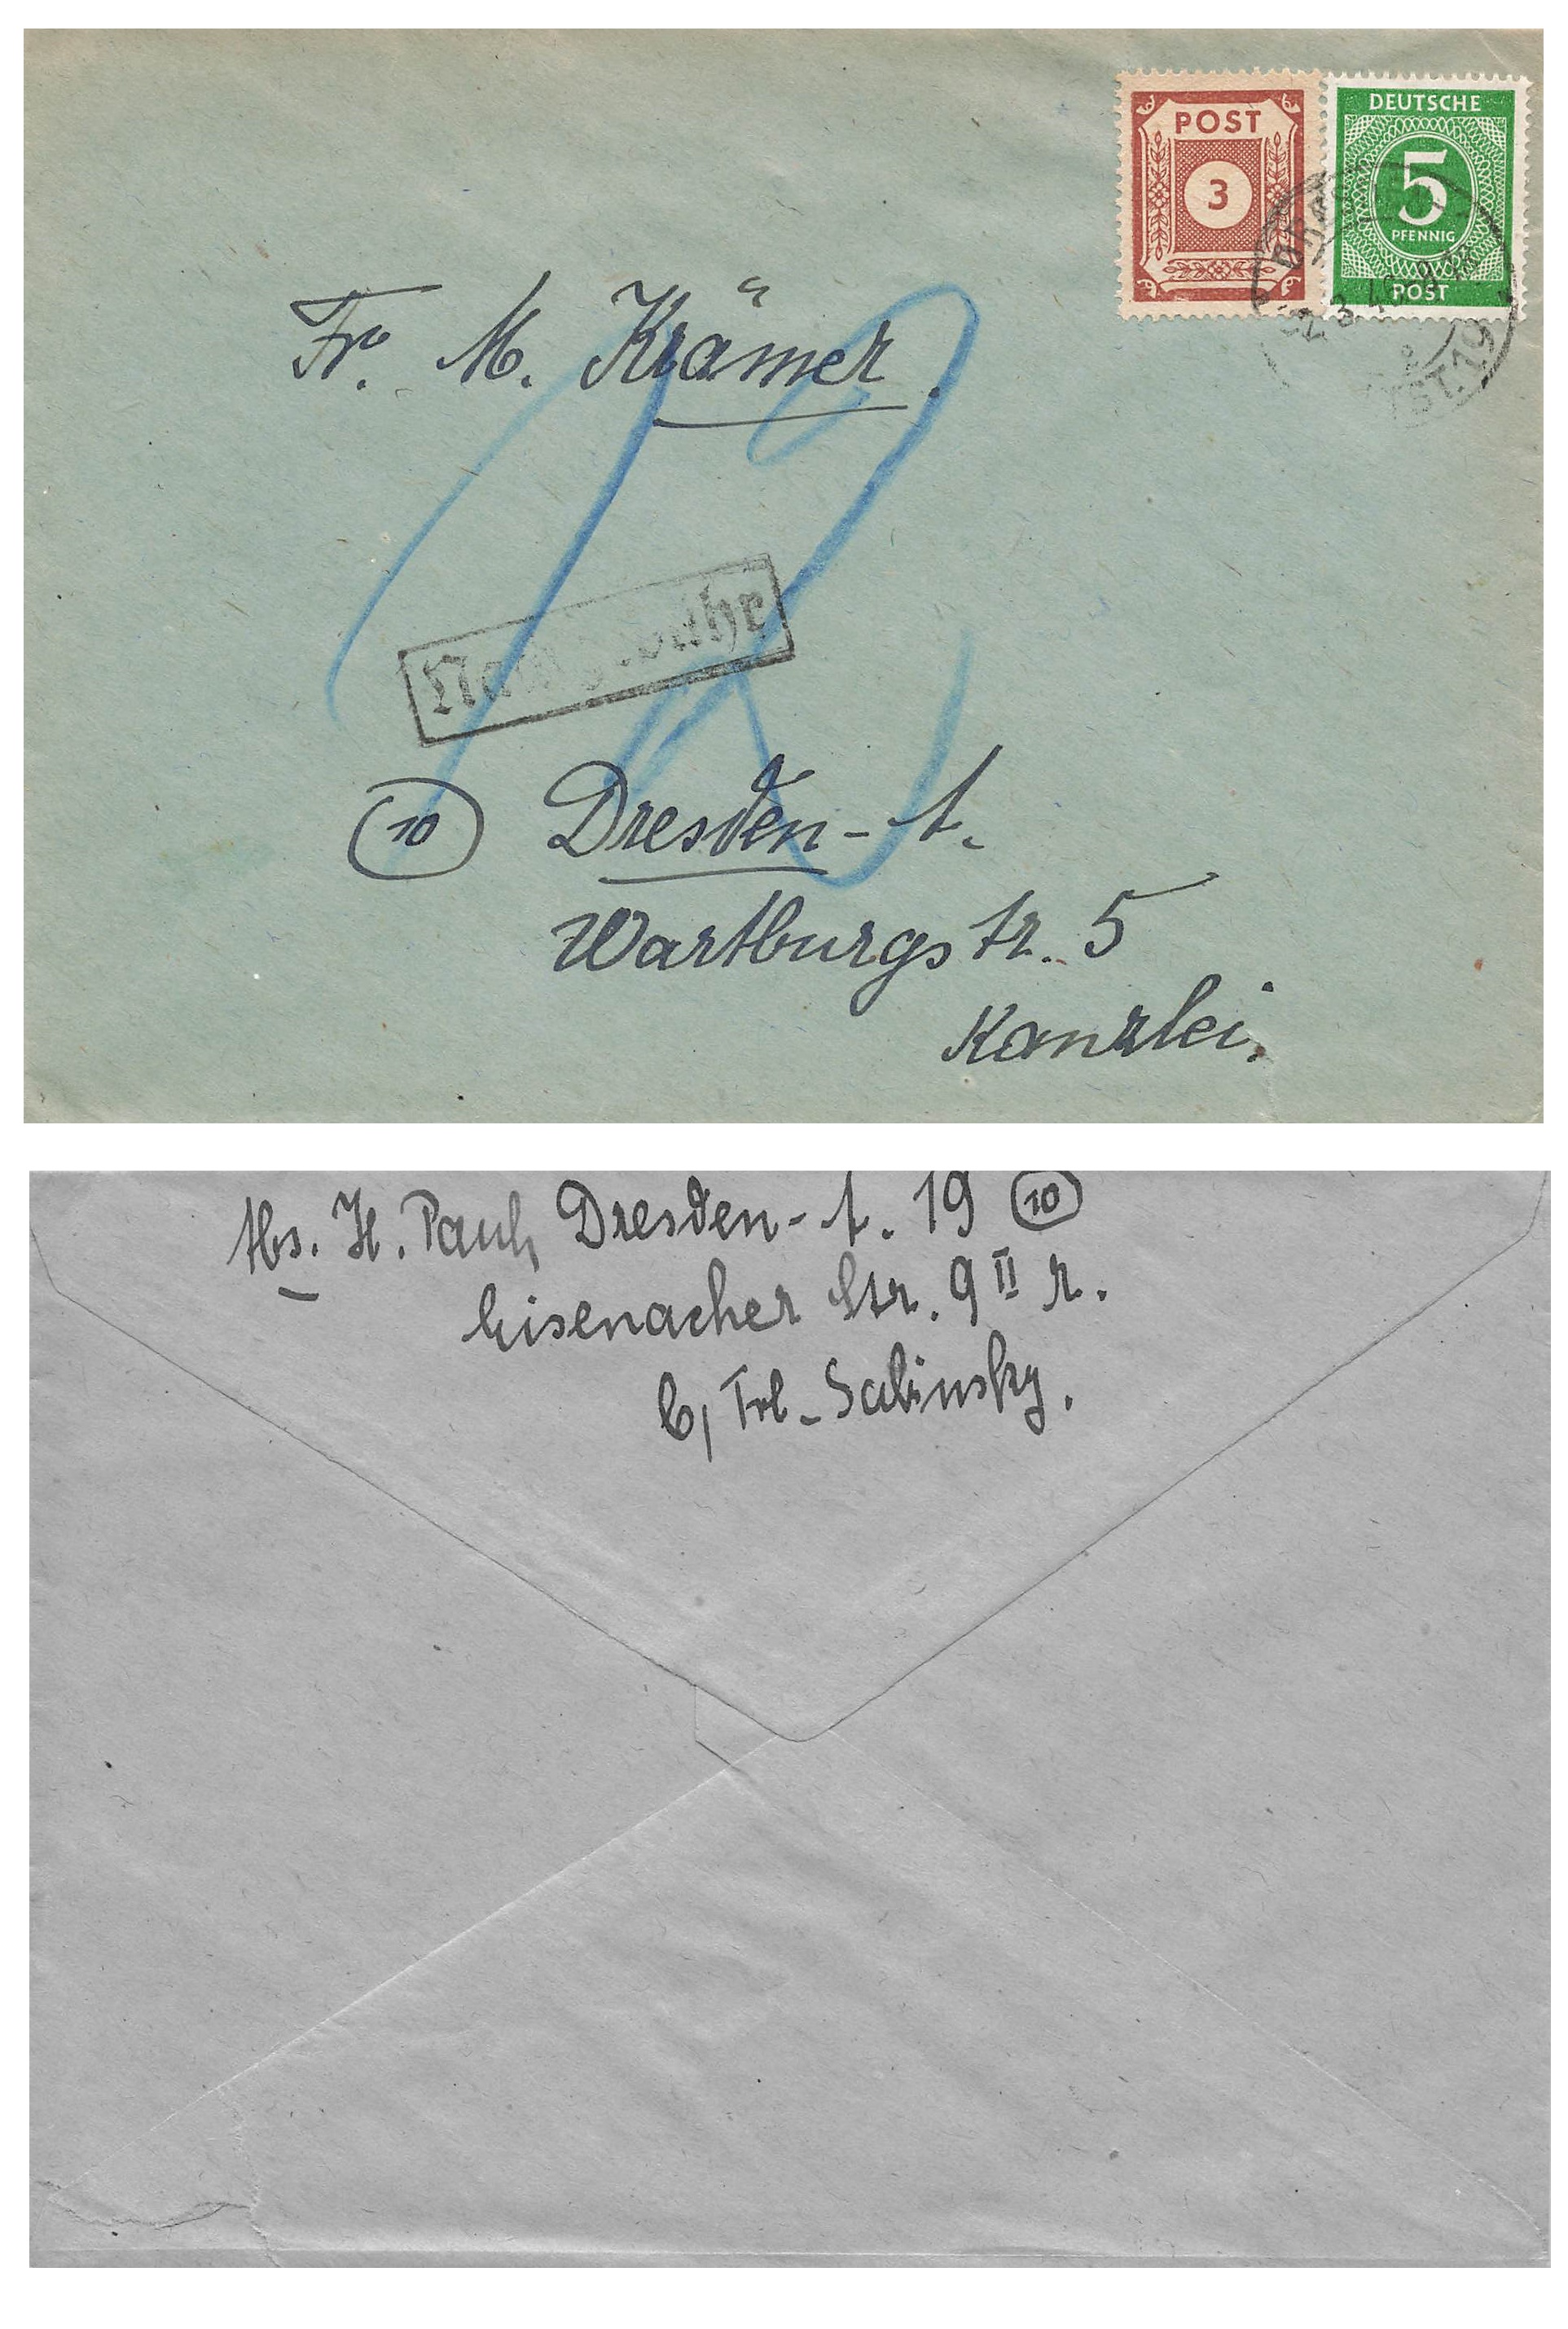 POST
3
DEUTSCHE
5
PFENNIG
POST
Fr. M. Krämer.
Nachgebühr
12
(10) Dresden-A.
Wartburgstr. 5
Kanzlei.
Abs. H. Paul, Dresden-A. 19 (10)
Eisenacher Str. 9 II r.
b/ Frl. Salinsky.